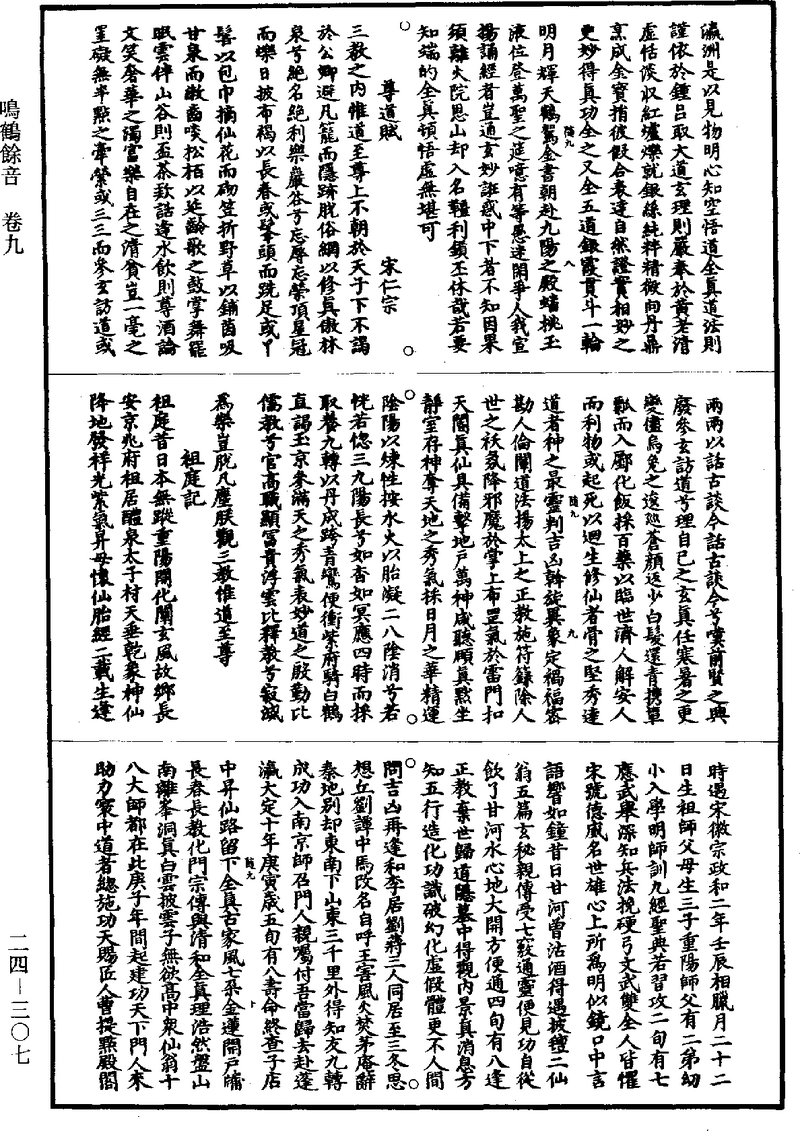 鳴鶴餘音 卷九
二四—三〇七
瀛洲是以見物明心知空悟道全真道法則
謹依於鍾呂取大道玄理則嚴奉於黃老清
虛恬淡収紅爐爍就銀絲純粹精微向丹鼎
烹成金寶指彼假合衰達自然證實相妙之
更妙得真功全之又全五道銀霞貫斗一輪
明月輝天鶴駕全書朝赴九陽之殿蟠桃玉
液位登萬聖之筵噫有等愚迷閑爭人我宣
揚誦經者豈通玄妙誑惑中下者不知因果
須離火院恩山却入名韁利鎖丕休哉若要
知端的全真頓悟虛無堪可
尊道賦
宋仁宗
三教之內惟道至尊上不朝於天子下不謁
於公卿避凡籠而隱跡脫俗網以修真傲林
泉兮絕名絕利樂巖谷兮忘辱忘榮頂星冠
而爍日披布褐以長春或髼頭而跣足或丫
髻以包巾摘仙花而砌笠折野草以鋪茵吸
甘泉而漱齒啖松栢以延齡歌之鼓掌舞罷
眠雲伴山谷則盃茶致話逢水飲則尊酒論
文笑奢華之濁富樂自在之清貧豈一毫之
罣礙無半點之牽縈或三三而參玄訪道或
兩兩以話古談今話古談今兮嘆前賢之興
廢參玄訪道兮理自己之玄真任寒暑之更
變儘烏兔之逡巡蒼顏返少白髮還青携單
瓢而入鄽化飯採百藥以臨世濟人解安人
而利物或起死以廻生修仙者骨之堅秀達
道者神之最靈判吉凶斡旋異象定禍福密
勘人倫闡道法揚太上之正教施符籙除人
世之祅氛降邪魔於掌上布罡氣於雷門扣
天關真仙具備擊地戶萬神咸聽頤真默坐
靜室存神奪天地之秀氣採日月之華精運
陰陽以煉性按水火以胎凝二八陰消兮若
恍若惚三九陽長兮如杳如冥應四時而採
取養九轉以丹成跨青鸞便衝紫府騎白鶴
直謁玉京朱滿天之秀氣表妙道之殷勤比
儒教兮官高職顯富貴浮雲比釋教兮寂滅
為樂豈脫凡塵朕觀三教惟道至尊
祖庭記
祖庭昔日本無蹤重陽開化闡玄風故鄉長
安京兆府祖居醴泉太子村天垂乾象神仙
降地發祥光紫氣昇母懷仙胎經二載生逢
時遇宋徽宗政和二年壬辰相臘月二十二
日生祖師父母生三子重陽師父有二弟幼
小入學明師訓九經聖典若習攻二旬有七
應武舉深知兵法挽硬弓文武雙全人皆懼
宋號德威名世雄心上所為明似鏡口中言
語響如鐘昔日甘河曾沽酒得遇披氈二仙
翁五篇玄秘親傳受七竅通靈便見功自從
飲了甘河水心地大開方便通四旬有八逢
正教棄世歸道隱墓中得觀內景真消息方
知五行造化功識破幻化虛假體更不人間
問吉凶再逢和李居劉蔣三人同居至三冬思
想丘劉譚中馬改名自呼王害風火焚茅庵辭
秦地別却東南下山東三千里外得知友九轉
成功入南京師召門人親囑付吾當歸去赴蓬
瀛大定十年庚寅歲五旬有八壽命終查子店
中昇仙路留下全真古家風七朵金蓮開戶牖
長春長教化門宗傳與清和全真理浩然盤山
南離峯洞真白雲披雲子無欲高中衆仙翁十
八大師都在此庚子年間起建功天下門人來
助力寰中道者總施功天賜匠人曹提點殿閣